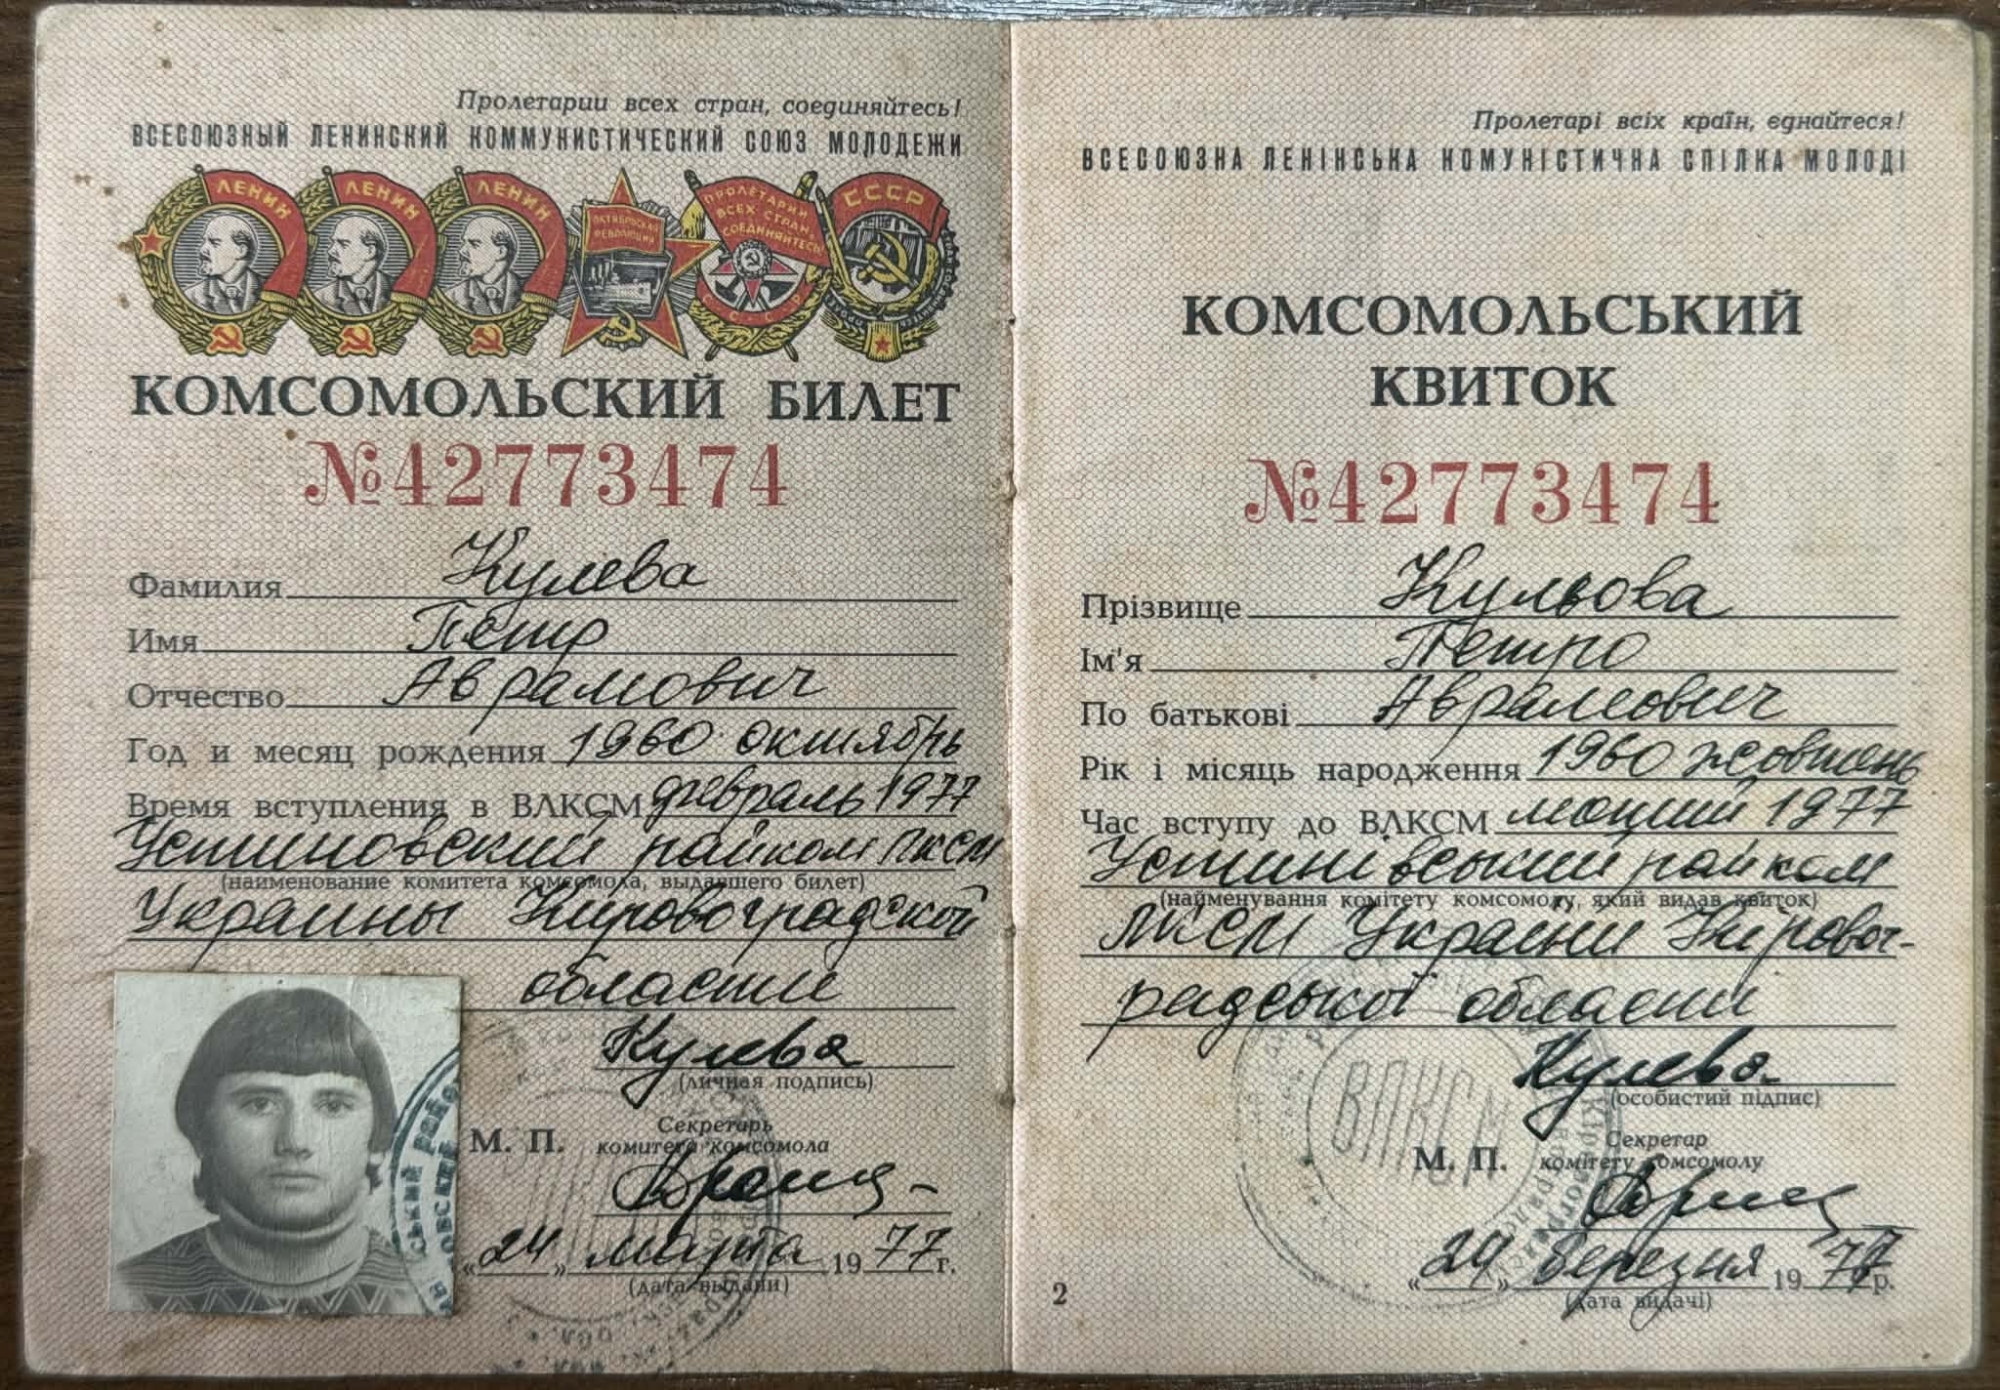 Пролетарии всех стран, соединяйтесь!
ВСЕСОЮЗНЫЙ ЛЕНИНСКИЙ КОММУНИСТИЧЕСКИЙ СОЮЗ МОЛОДЕЖИ
ЛЕНИН ЛЕНИН ЛЕНИН ОКТЯБРЬСКАЯ РЕВОЛЮЦИЯ ПРОЛЕТАРИИ ВСЕХ СТРАН, СОЕДИНЯЙТЕСЬ! СССР
КОМСОМОЛЬСКИЙ БИЛЕТ
№42773474
Фамилия Кулёва
Имя Пётр
Отчество Аврамович
Год и месяц рождения 1960 октябрь
Время вступления в ВЛКСМ февраль 1977
Устиновский райком ЛКСМ
(наименование комитета комсомола, выдавшего билет)
Украины Кировоградской
области
Кулева
(личная подпись)
М. П. Секретарь
комитета комсомола
„24" марта 1977 г.
(дата выдачи)
Пролетарі всіх країн, єднайтеся!
ВСЕСОЮЗНА ЛЕНІНСЬКА КОМУНІСТИЧНА СПІЛКА МОЛОДІ
КОМСОМОЛЬСЬКИЙ
КВИТОК
№42773474
Прізвище Кульова
Ім'я Петро
По батькові Аврамович
Рік і місяць народження 1960 жовтень
Час вступу до ВЛКСМ лютий 1977
Устинівський райком
(найменування комітету комсомолу, який видав квиток)
ЛКСМ України Кіровог-
радської області
Кулева
(особистий підпис)
ВЛКСМ
М. П. Секретар
комітету комсомолу
„24" березня 1977 р.
(дата видачі)
2